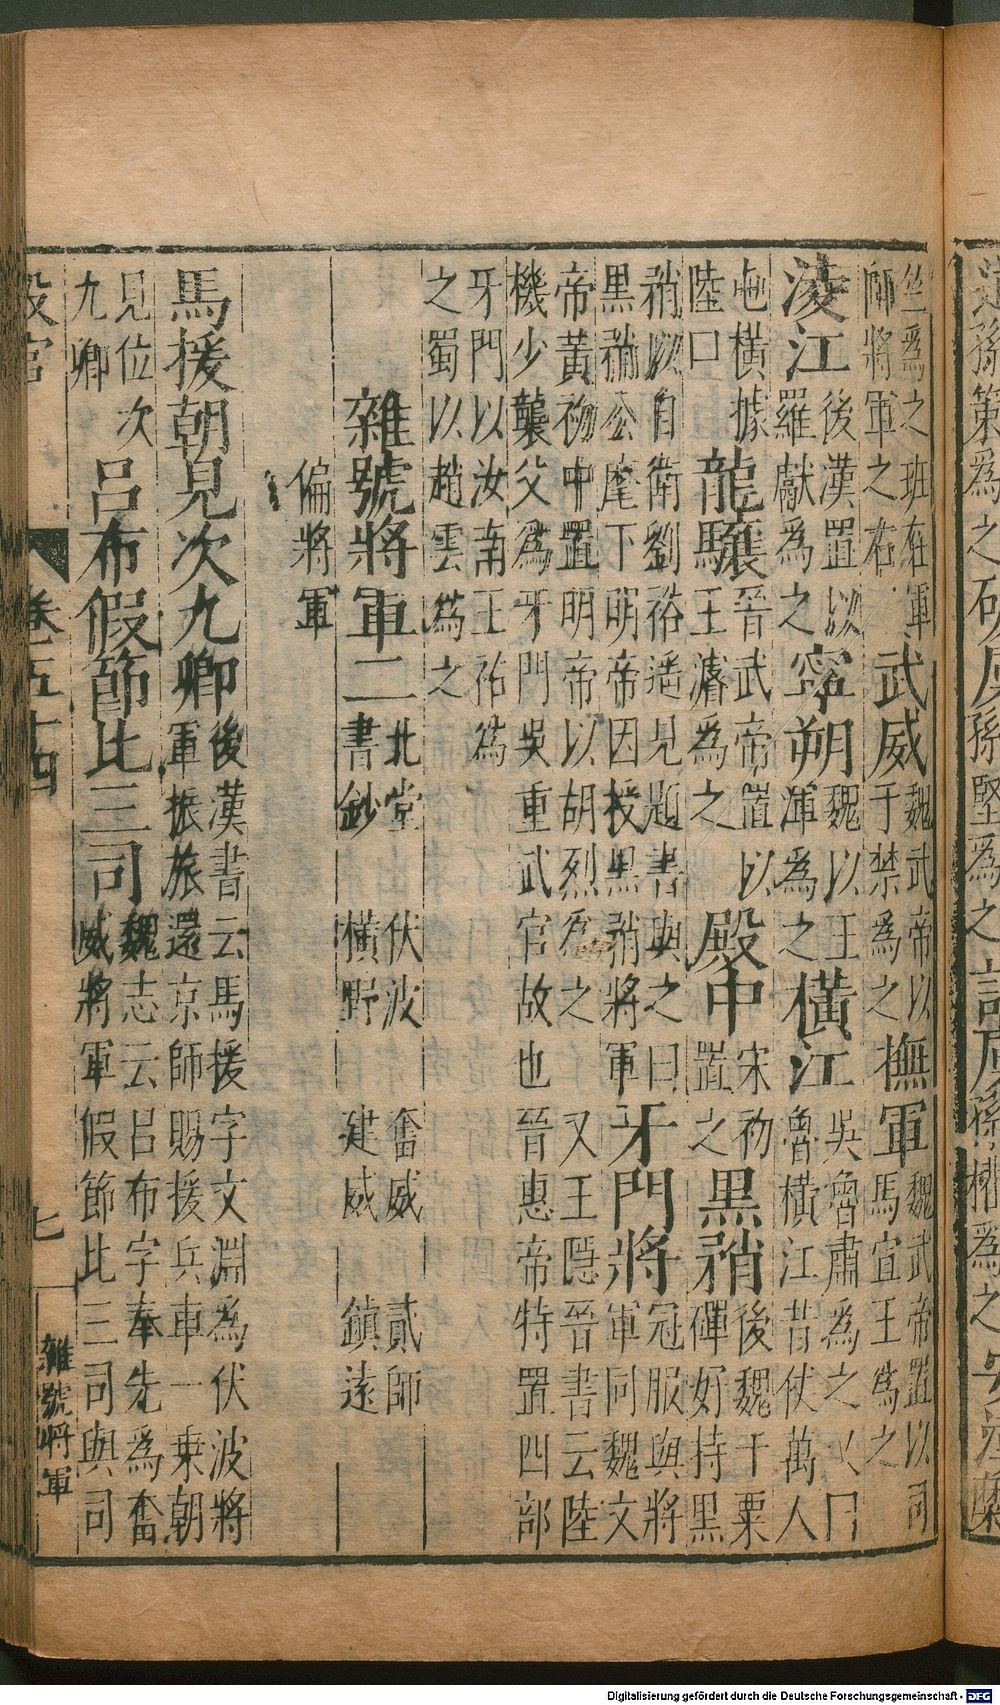 竝為之班在軍師將軍之右　武威魏武帝以于禁為之　撫軍魏武帝置以司馬宣王為之
淩江後漢置以羅獻為之　寧朔魏以王渾為之　橫江吳魯肅為之魯橫江昔仗萬人
屯橫據陸口　龍驤晉武帝置以王濬為之　殿中宋初置之　黑矟後魏于栗磾好持黑
矟以自衛劉裕遥見題書與之曰黑矟公麾下明帝因授黑矟將軍　牙門將冠服與將軍同魏文
帝黃初中置明帝以胡烈為之又王隱晉書云陸機少襲父為牙門吳重武官故也晉惠帝特置四部
牙門以汝南王祐為之蜀以趙雲為之
雜號將軍二北堂書鈔　伏波　橫野　奮威　建威　貳師　鎮遠
偏將軍
馬援朝見次九卿後漢書云馬援字文淵為伏波將軍振旅還京師賜援兵車一乘朝
見位次九卿　呂布假節比三司魏志云呂布字奉先為奮威將軍假節比三司與司
設官　卷五十四　七　雜號將軍
Digitalisierung gefördert durch die Deutsche Forschungsgemeinschaft - DFG